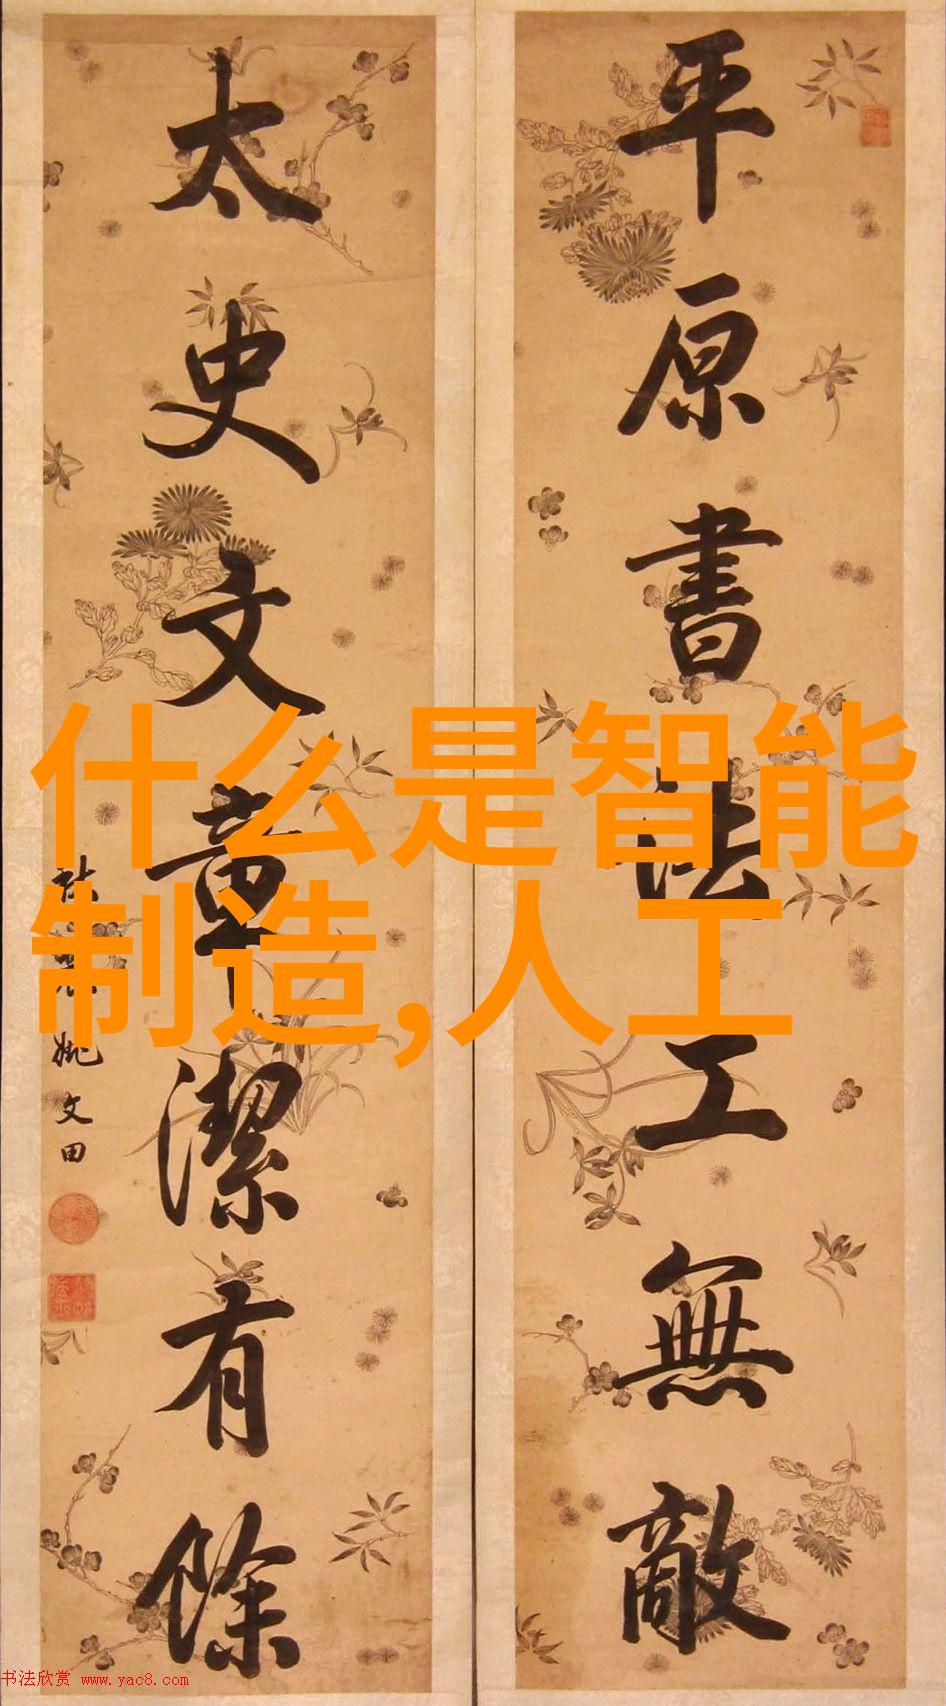 平原書法工無敵
太史文章潔有餘
姚文田
什么是智能
制造,人工
书法欣赏 www.yac8.com